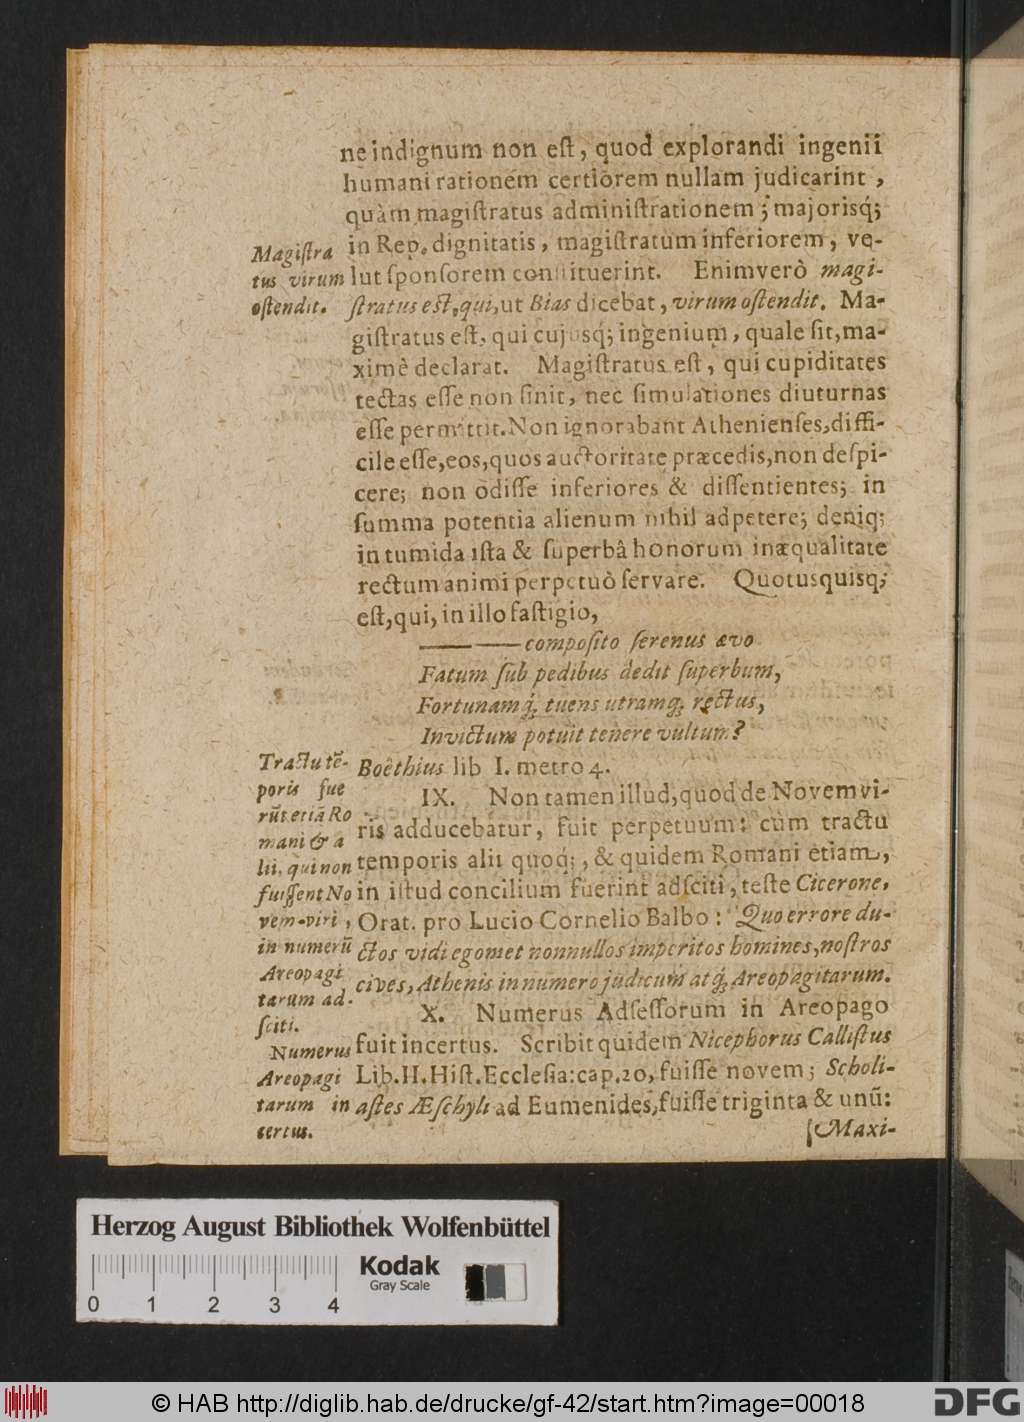 ne indignum non eſt, quod explorandi ingenii
humani rationem certiorem nullam judicarint,
quàm magiſtratus adminiſtrationem; majorisq́;
in Rep. dignitatis, magiſtratum inferiorem, ve-
lut ſponſorem conſtituerint. Enimverò magi-
ſtratus eſt, qui, ut Bias dicebat, virum oſtendit. Ma-
giſtratus eſt, qui cujusq́; ingenium, quale ſit, ma-
ximè declarat. Magiſtratus eſt, qui cupiditates
tectas eſſe non ſinit, nec ſimulationes diuturnas
eſſe permittit. Non ignorabant Athenienſes, diffi-
cile eſſe, eos, quos auctoritate præcedis, non deſpi-
cere; non odiſſe inferiores & diſſentientes; in
ſumma potentia alienum nihil adpetere; deniq́;
in tumida iſta & ſuperbâ honorum inæqualitate
rectum animi perpetuò ſervare. Quotusquisq́;
eſt, qui, in illo faſtigio,
—— —— compoſito ſerenus ævo
Fatum ſub pedibus dedit ſuperbum,
Fortunamq́; tuens utramq́; rectus,
Invictum potuit tenere vultum?
Boëthius lib I. metro 4.
IX. Non tamen illud, quod de Novemvi-
ris adducebatur, fuit perpetuum: cùm tractu
temporis alii quoq́;, & quidem Romani etiam,
in iſtud concilium fuerint adſciti, teſte Cicerone,
Orat. pro Lucio Cornelio Balbo: Quo errore du-
ctos vidi egomet nonnullos imperitos homines, noſtros
cives, Athenis in numero judicum atq́; Areopagitarum.
X. Numerus Adſeſſorum in Areopago
fuit incertus. Scribit quidem Nicephorus Calliſtus
Lib. II. Hiſt. Eccleſia: cap. 20, fuiſſe novem; Scholi-
aſtes Æſchyli ad Eumenides, fuiſſe triginta & unũ:
Maxi-
Magiſtra
tus virum
oſtendit.
Tractu tẽ-
poris fue
rũt etiã Ro
mani & a
lii, qui non
fuiſſent No
vem-viri,
in numerũ
Areopagi
tarum ad-
ſciti.
Numerus
Areopagi
tarum in
certus.
Herzog August Bibliothek Wolfenbüttel
Kodak
Gray Scale
0 1 2 3 4
© HAB http://diglib.hab.de/drucke/gf-42/start.htm?image=00018
DFG